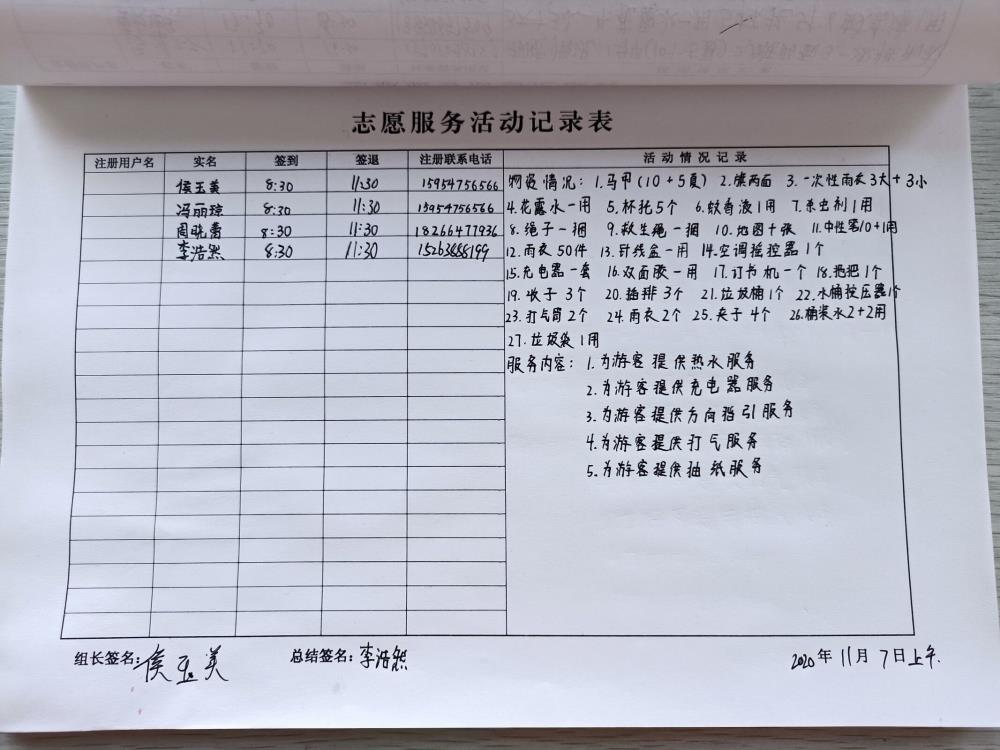 志愿服务活动记录表
注册用户名 实名 签到 签退 注册联系电话 活动情况记录
侯玉美 8:30 11:30 15954756566 物资情况：1.马甲(10+5夏) 2.镜两面 3.一次性雨衣3大+3小
冯丽琼 8:30 11:30 15954756566 4.花露水一用 5.杯托5个 6.蚊香液1用 7.杀虫剂1用
周晓蕾 8:30 11:30 18266477936 8.绳子一捆 9.救生绳一捆 10.地图十张 11.中性笔10+1用
李浩然 8:30 11:30 15263688199 12.雨衣50件 13.针线盒一用 14.空调摇控器1个
15.充电器一套 16.双面胶一用 17.订书机一个 18.拖把1个
19.收子3个 20.插排3个 21.垃圾桶1个 22.水桶按压器1个
23.打气筒2个 24.雨衣2个 25.夹子4个 26.桶装水2+2用
27.垃圾袋1用
服务内容：1.为游客提供热水服务
2.为游客提供充电器服务
3.为游客提供方向指引服务
4.为游客提供打气服务
5.为游客提供抽纸服务
组长签名：侯玉美 总结签名：李浩然 2020年11月7日上午.